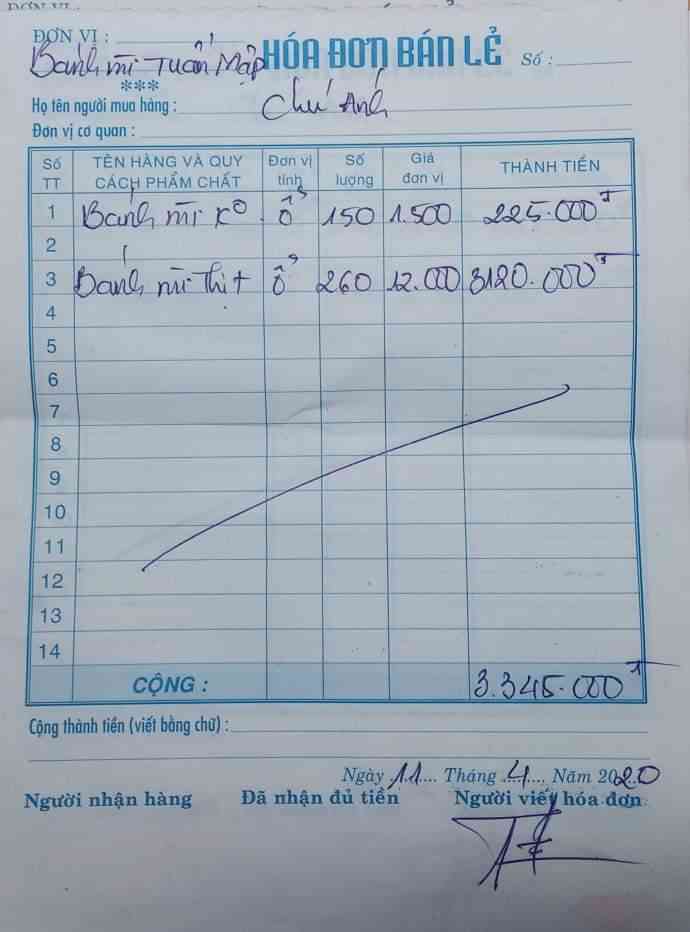 ĐƠN VỊ : Bánh mì Tuấn Mập
HÓA ĐƠN BÁN LẺ Số :
***
Họ tên người mua hàng : Chú Anh
Đơn vị cơ quan :
Số TT TÊN HÀNG VÀ QUY CÁCH PHẨM CHẤT Đơn vị tính Số lượng Giá đơn vị THÀNH TIỀN
1 Bánh mì K° ổ 150 1.500 225.000đ
2
3 Bánh mì Thịt ổ 260 12.000 3120.000đ
4
5
6
7
8
9
10
11
12
13
14
CỘNG : 3.345.000đ
Cộng thành tiền (viết bằng chữ) :
Ngày 11 Tháng 4 Năm 2020
Người nhận hàng Đã nhận đủ tiền Người viết hóa đơn